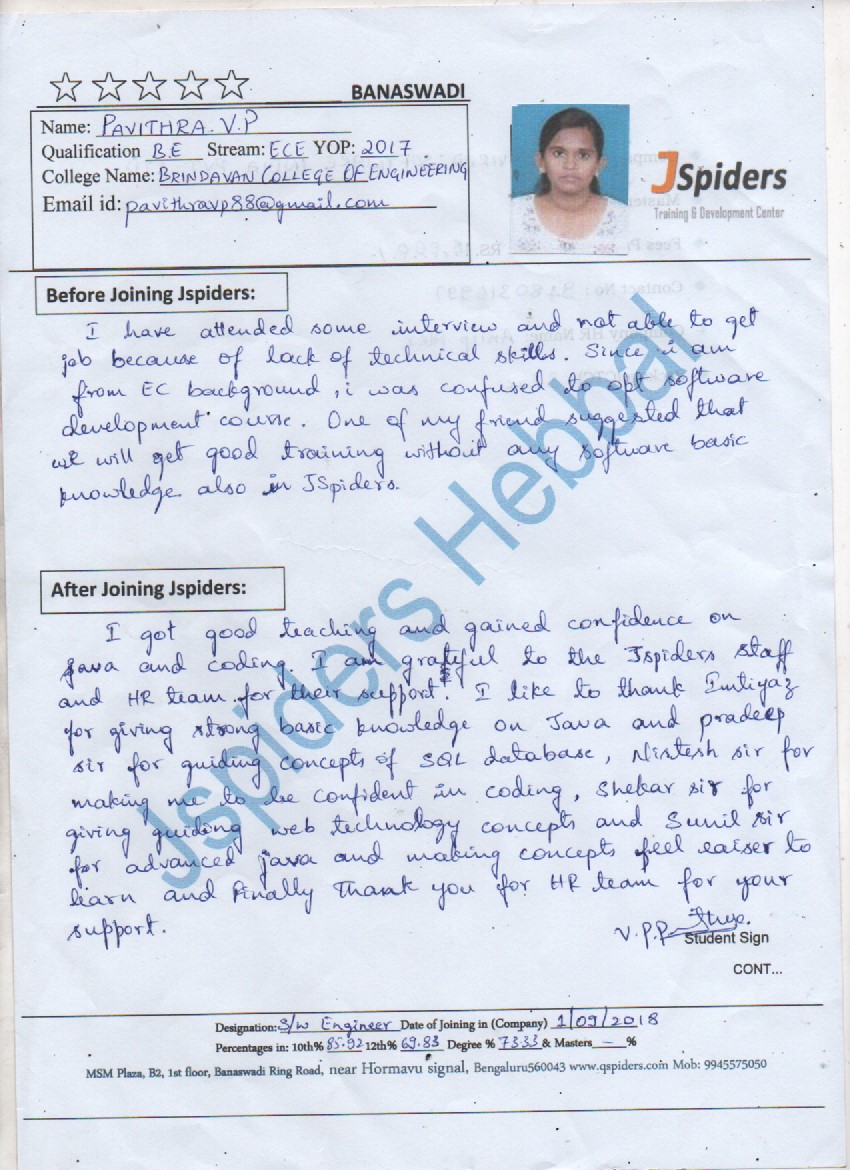 BANASWADI
Name: PAVITHRA. V.P
Qualification B.E Stream: ECE YOP: 2017
College Name: BRINDAVAN COLLEGE OF ENGINEERING
Email id: pavithravp88@gmail.com
JSpiders
Training & Development Center
Before Joining Jspiders:
I have attended some interview and not able to get
job because of lack of technical skills. Since i am
from EC background, i was confused to opt software
development course. One of my friend suggested that
we will get good training without any software basic
knowledge also in JSpiders.
Jspiders Hebbal
After Joining Jspiders:
I got good teaching and gained confidence on
Java and coding. I am grateful to the Jspiders staff
and HR team for their support. I like to thank Imtiyaz
for giving strong basic knowledge on Java and pradeep
sir for guiding concepts of SQL database, Nistesh sir for
making me to be confident in coding, Shekar sir for
giving guiding web technology concepts and Sunil sir
for advanced java and making concepts feel eaiser to
learn and Finally Thank you for HR team for your
support.
V.P.P
Student Sign
CONT...
Designation: S/w Engineer Date of Joining in (Company) 1/09/2018
Percentages in: 10th% 85.92 12th% 69.83 Degree % 73.33 & Masters - %
MSM Plaza, B2, 1st floor, Banaswadi Ring Road, near Hormavu signal, Bengaluru560043 www.qspiders.com Mob: 9945575050